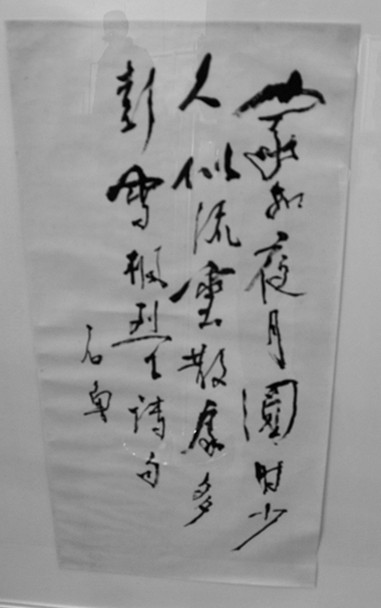 家如夜月圓时少
人似流雲散處多
彭雪楓烈士詩句
石